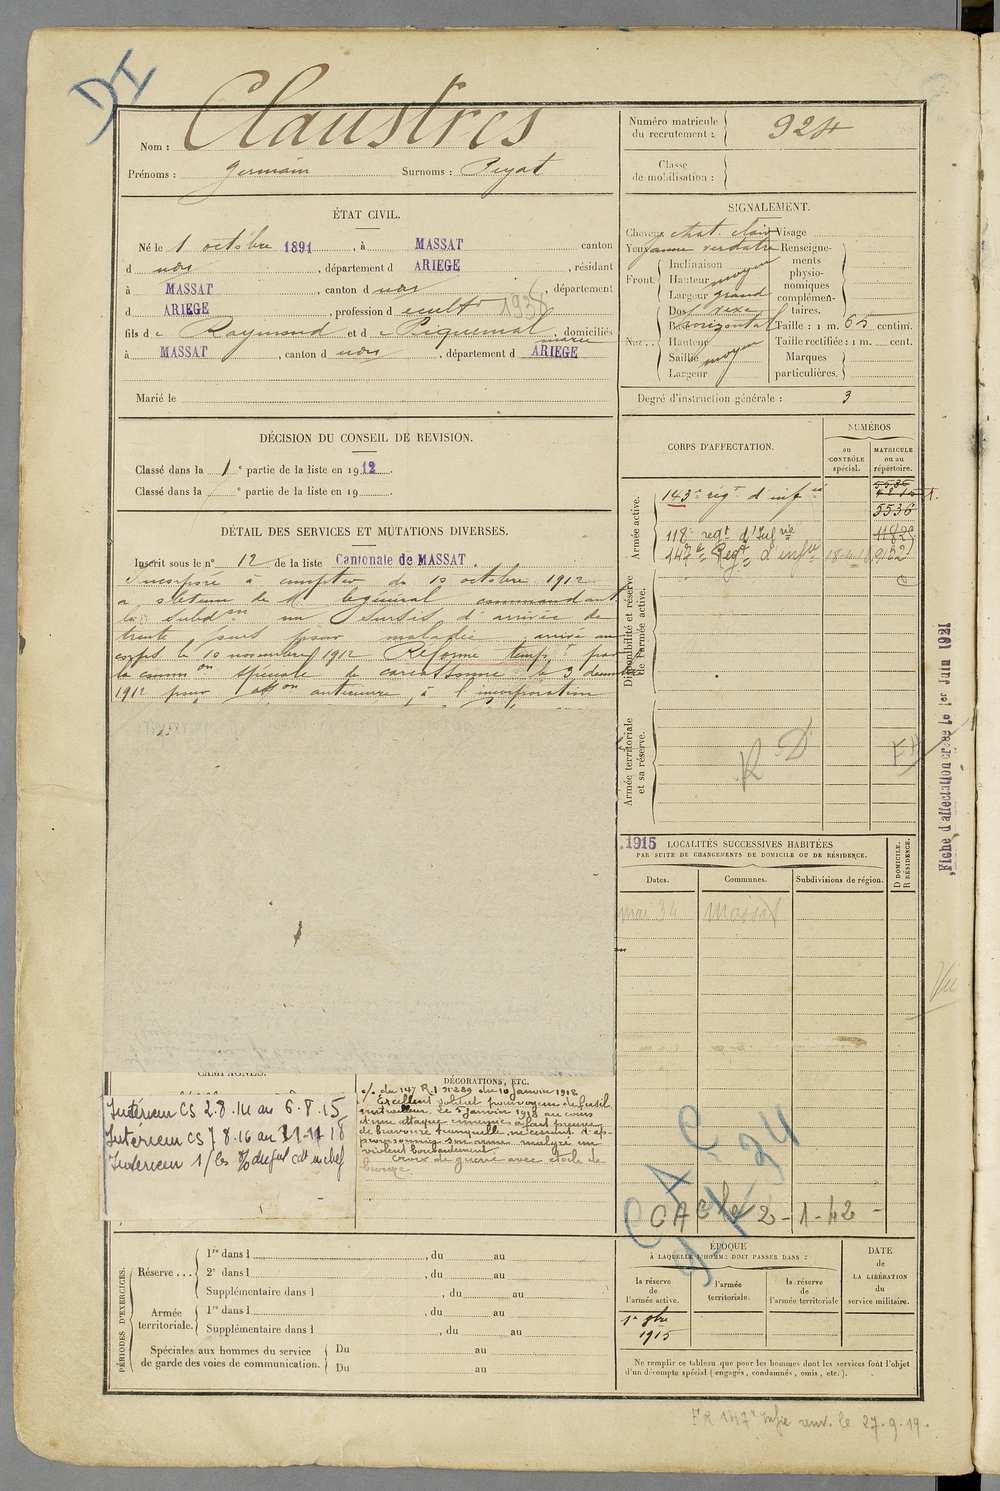 DI
Nom : Claustres
Prénoms : Germain Surnoms : Peyat
ÉTAT CIVIL.
Né le 1 octobre 1891, à MASSAT canton
d udit, département d ARIEGE, résidant
à MASSAT, canton d udit, département
d ARIEGE, profession d cultr 1938
fils de Raymond et de Piquemal marie, domiciliés
à MASSAT, canton d udit, département d ARIEGE
Marié le
DÉCISION DU CONSEIL DE REVISION.
Classé dans la 1e partie de la liste en 1912.
Classé dans la e partie de la liste en 19
DÉTAIL DES SERVICES ET MUTATIONS DIVERSES.
Inscrit sous le n° 12 de la liste Cantonale de MASSAT.
Incorporé à compter du 10 octobre 1912
a obtenu de M. le général commandant
la subdon un sursis d'arrivée de
trente jours pour maladie, arrivé au
corps le 10 novembre 1912 Réformé tempt par
la common spéciale de carcassonne le 3 décembre
1912 pour affon antérieure à l'incorporation
CAMPAGNES.
Intérieur CS 2.8.14 au 6.8.15
Intérieur CS 7.8.16 au 11-11 18
Intérieur s/les
DÉCORATIONS, ETC.
o/. du 147 R.I n° 289 du 10 Janvier 1918
Excellent soldat pourvoyeur de fusil
mitrailleur. Le 5 Janvier 1918 au cours
d'une attaque ennemie a fait preuve
de bravoure tranquille ne cessant d'ap-
provisionner son arme malgré un
violent bombardement.
Croix de guerre avec étoile de
bronze
Numéro matricule du recrutement : 924
Classe de mobilisation :
SIGNALEMENT.
Cheveux chat. clair Visage
Yeux jaune verdatre Renseigne-
ments
physio-
nomiques
complémen-
taires.
Front. Inclinaison
Hauteur moyen
Largeur grand
Nez... Dos vexe
Base horizontal Taille : 1 m. 65 centim.
Hauteur Taille rectifiée : 1 m. cent.
Saillie moyen Marques
Largeur particulières.
Degré d'instruction générale : 3
CORPS D'AFFECTATION.
NUMÉROS
au CONTRÔLE spécial.
MATRICULE ou au répertoire.
Armée active.
143e régt d'infrie
5536
118e regt d'Infrie 11829
147e Régt d'infie 18-4-18 9132
C
Disponibilité et réserve de l'armée active.
Armée territoriale et sa réserve.
R D
Fiche d'affectation créée le 1er Juin 1921
Vu
.1915
LOCALITÉS SUCCESSIVES HABITÉES
PAR SUITE DE CHANGEMENTS DE DOMICILE OU DE RÉSIDENCE.
Dates. Communes. Subdivisions de région. D DOMICILE. R RÉSIDENCE.
mai 34 Massat
CAC
9-4-34
CAC le 2-1-42
PÉRIODES D'EXERCICES.
Réserve... 1re dans l , du au
2e dans l , du au
Supplémentaire dans l , du au
Armée territoriale. 1re dans l , du au
Supplémentaire dans l , du au
Spéciales aux hommes du service de garde des voies de communication. Du au
Du au
ÉPOQUE
À LAQUELLE L'HOMME DOIT PASSER DANS :
la réserve de l'armée active.
l'armée territoriale.
la réserve de l'armée territoriale
DATE de LA LIBÉRATION du service militaire.
1er 8bre
1915
Ne remplir ce tableau que pour les hommes dont les services font l'objet
d'un décompte spécial (engagés, condamnés, omis, etc.).
FR 147e Infie renv. le 27.9.19.